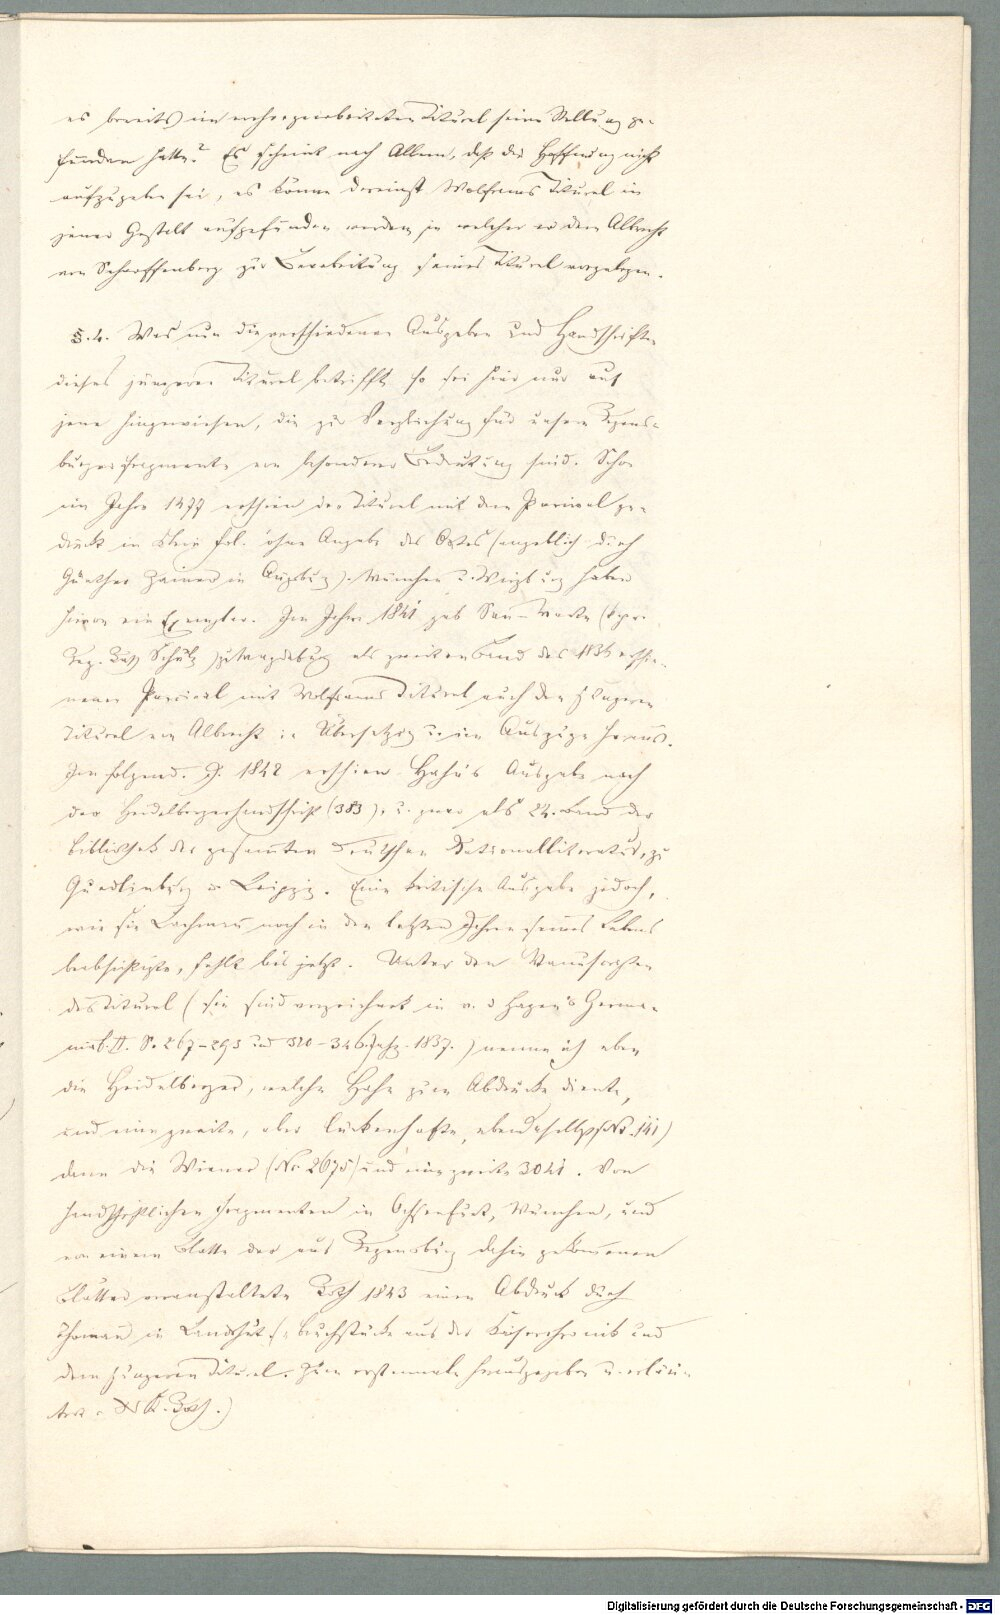 es bereits im mehrgenarbeiteten Titurel seine Stellung ge-
funden hatte? Es scheint nach Allem, daß die Hoffnung nicht
aufzugeben sei, es könne dereinst Wolframs Titurel in
jener Gestalt aufgefunden werden, in welcher er dem Albrecht
von Scharffenberg zur Bearbeitung seines Titurel vorgelegen.
§. 4. Was nun die verschiedenen Ausgaben und Handschriften
dieses jüngeren Titurel betrifft, so sei hier nur auf
jene hingewiesen, die zur Vergleichung für unsere Regens-
burger Fragmente von besonderer Bedeutung sind. Schon
im Jahre 1477 erschien der Titurel mit dem Parcival ge-
druckt in klein fol. ohne Angabe des Ortes (angeblich durch
Günther Zainer in Augsburg). München u. Würzburg haben
hievon ein Exemplar. Im Jahre 1841 gab San-Marte (
Reg. Rath Schulz) zu Magdeburg als zweiten Band des 1836 erschie-
nenen Parcival mit Wolframs Titurel auch den jüngeren
Titurel von Albrecht in Übersetzung u. im Auszuge heraus.
Im folgend. J. 1842 erschien Hahn's Ausgabe nach
der Heidelbergerhandschrift (383), u. zwar als 24. Band der
Bibliothek der gesammten deutschen Nationalliteratur, zu
Quedlinburg u. Leipzig. Eine kritische Ausgabe jedoch,
wie sie Lachmann noch in den letzten Jahren seines Lebens
beabsichtigte, fehlt bis jetzt. Unter den Manuscripten
des Titurel (sie sind verzeichnet in v. d. Hagen's Germa-
nia b. II. S. 267-293 und 320-326. Jahrg. 1837.) nenne ich eben
die Heidelberger, welche Hahn zum Abdrucke diente,
und eine zweite, aber lückenhafte, ebendaselbst (No. 141)
dann die Wiener (No 2675) und eine zweite 3041. Von
handschriftlichen Fragmenten in Ochsenfurt, München, und
von einem Blatte der aus Regensburg dahin gekommenen
Blätter veranstaltete Roth 1843 einen Abdruck durch
Thomann in Landshut. (: Bruchstücke aus der Kaiserchronik und
dem jüngeren Titurel. Zum erstenmale herausgegeben u. erläu-
tert v. Dr K. Roth.)
Digitalisierung gefördert durch die Deutsche Forschungsgemeinschaft - DFG